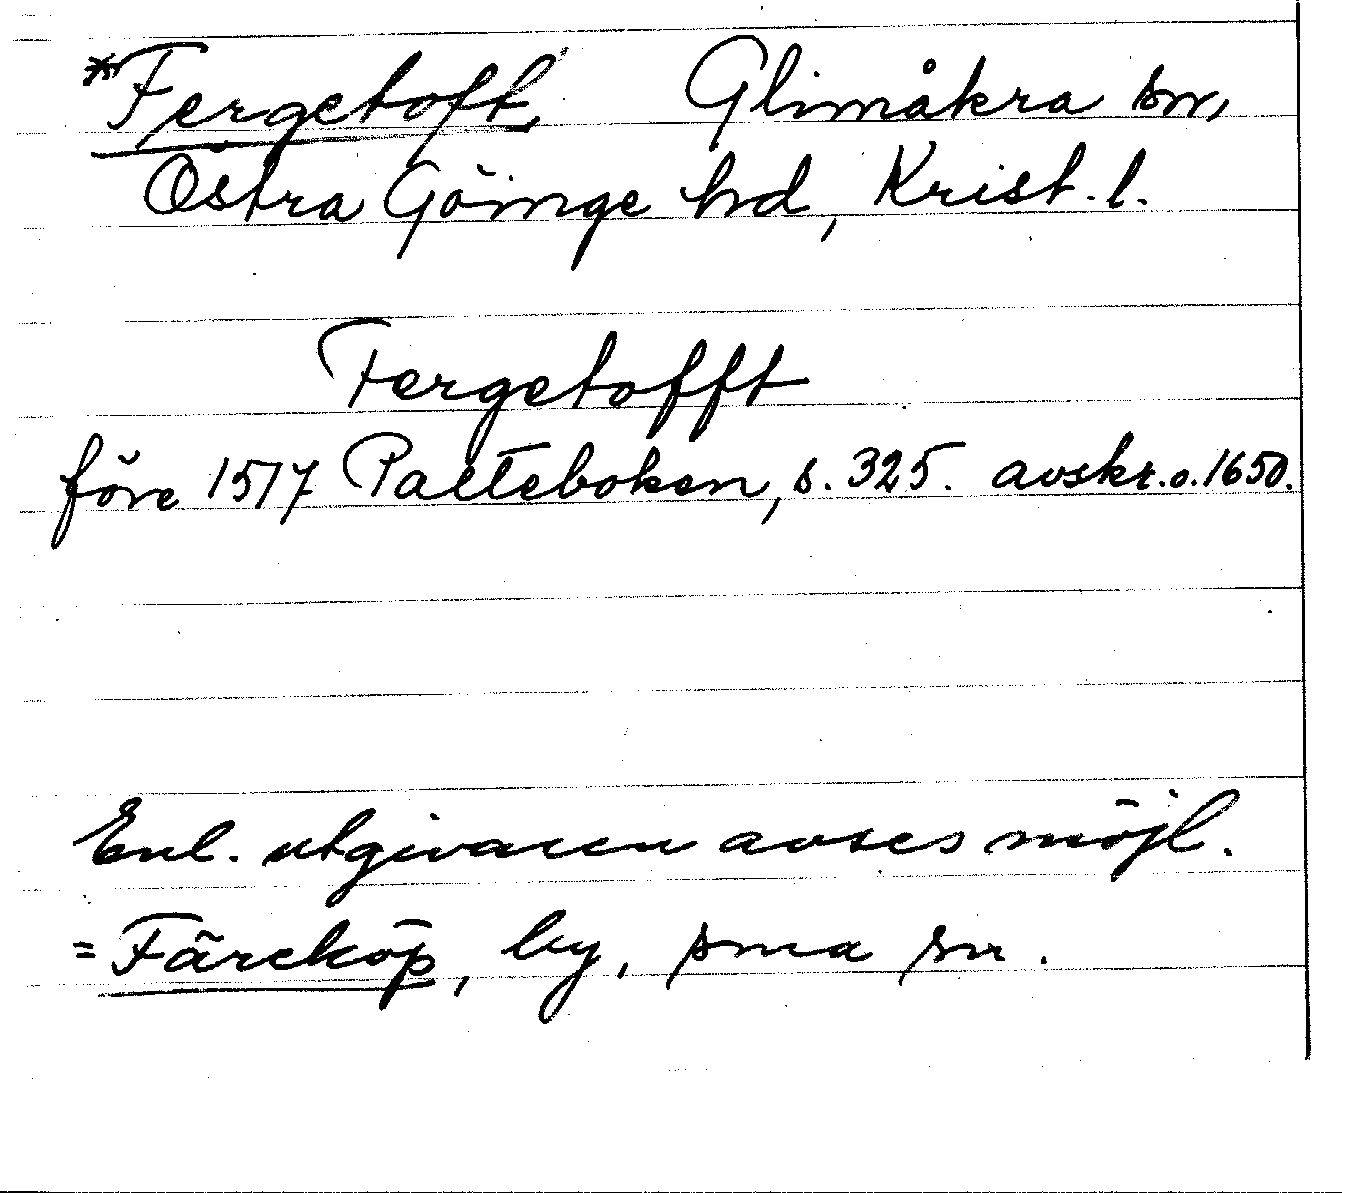 *Fergetoft, Glimåkra sn,
Östra Göinge hd, Krist. l.
Fergetofft
före 1517 Palteboken, s. 325. avskr. o. 1650.
Enl. utgivaren avses möjl.
= Färeköp, by, sma sn.